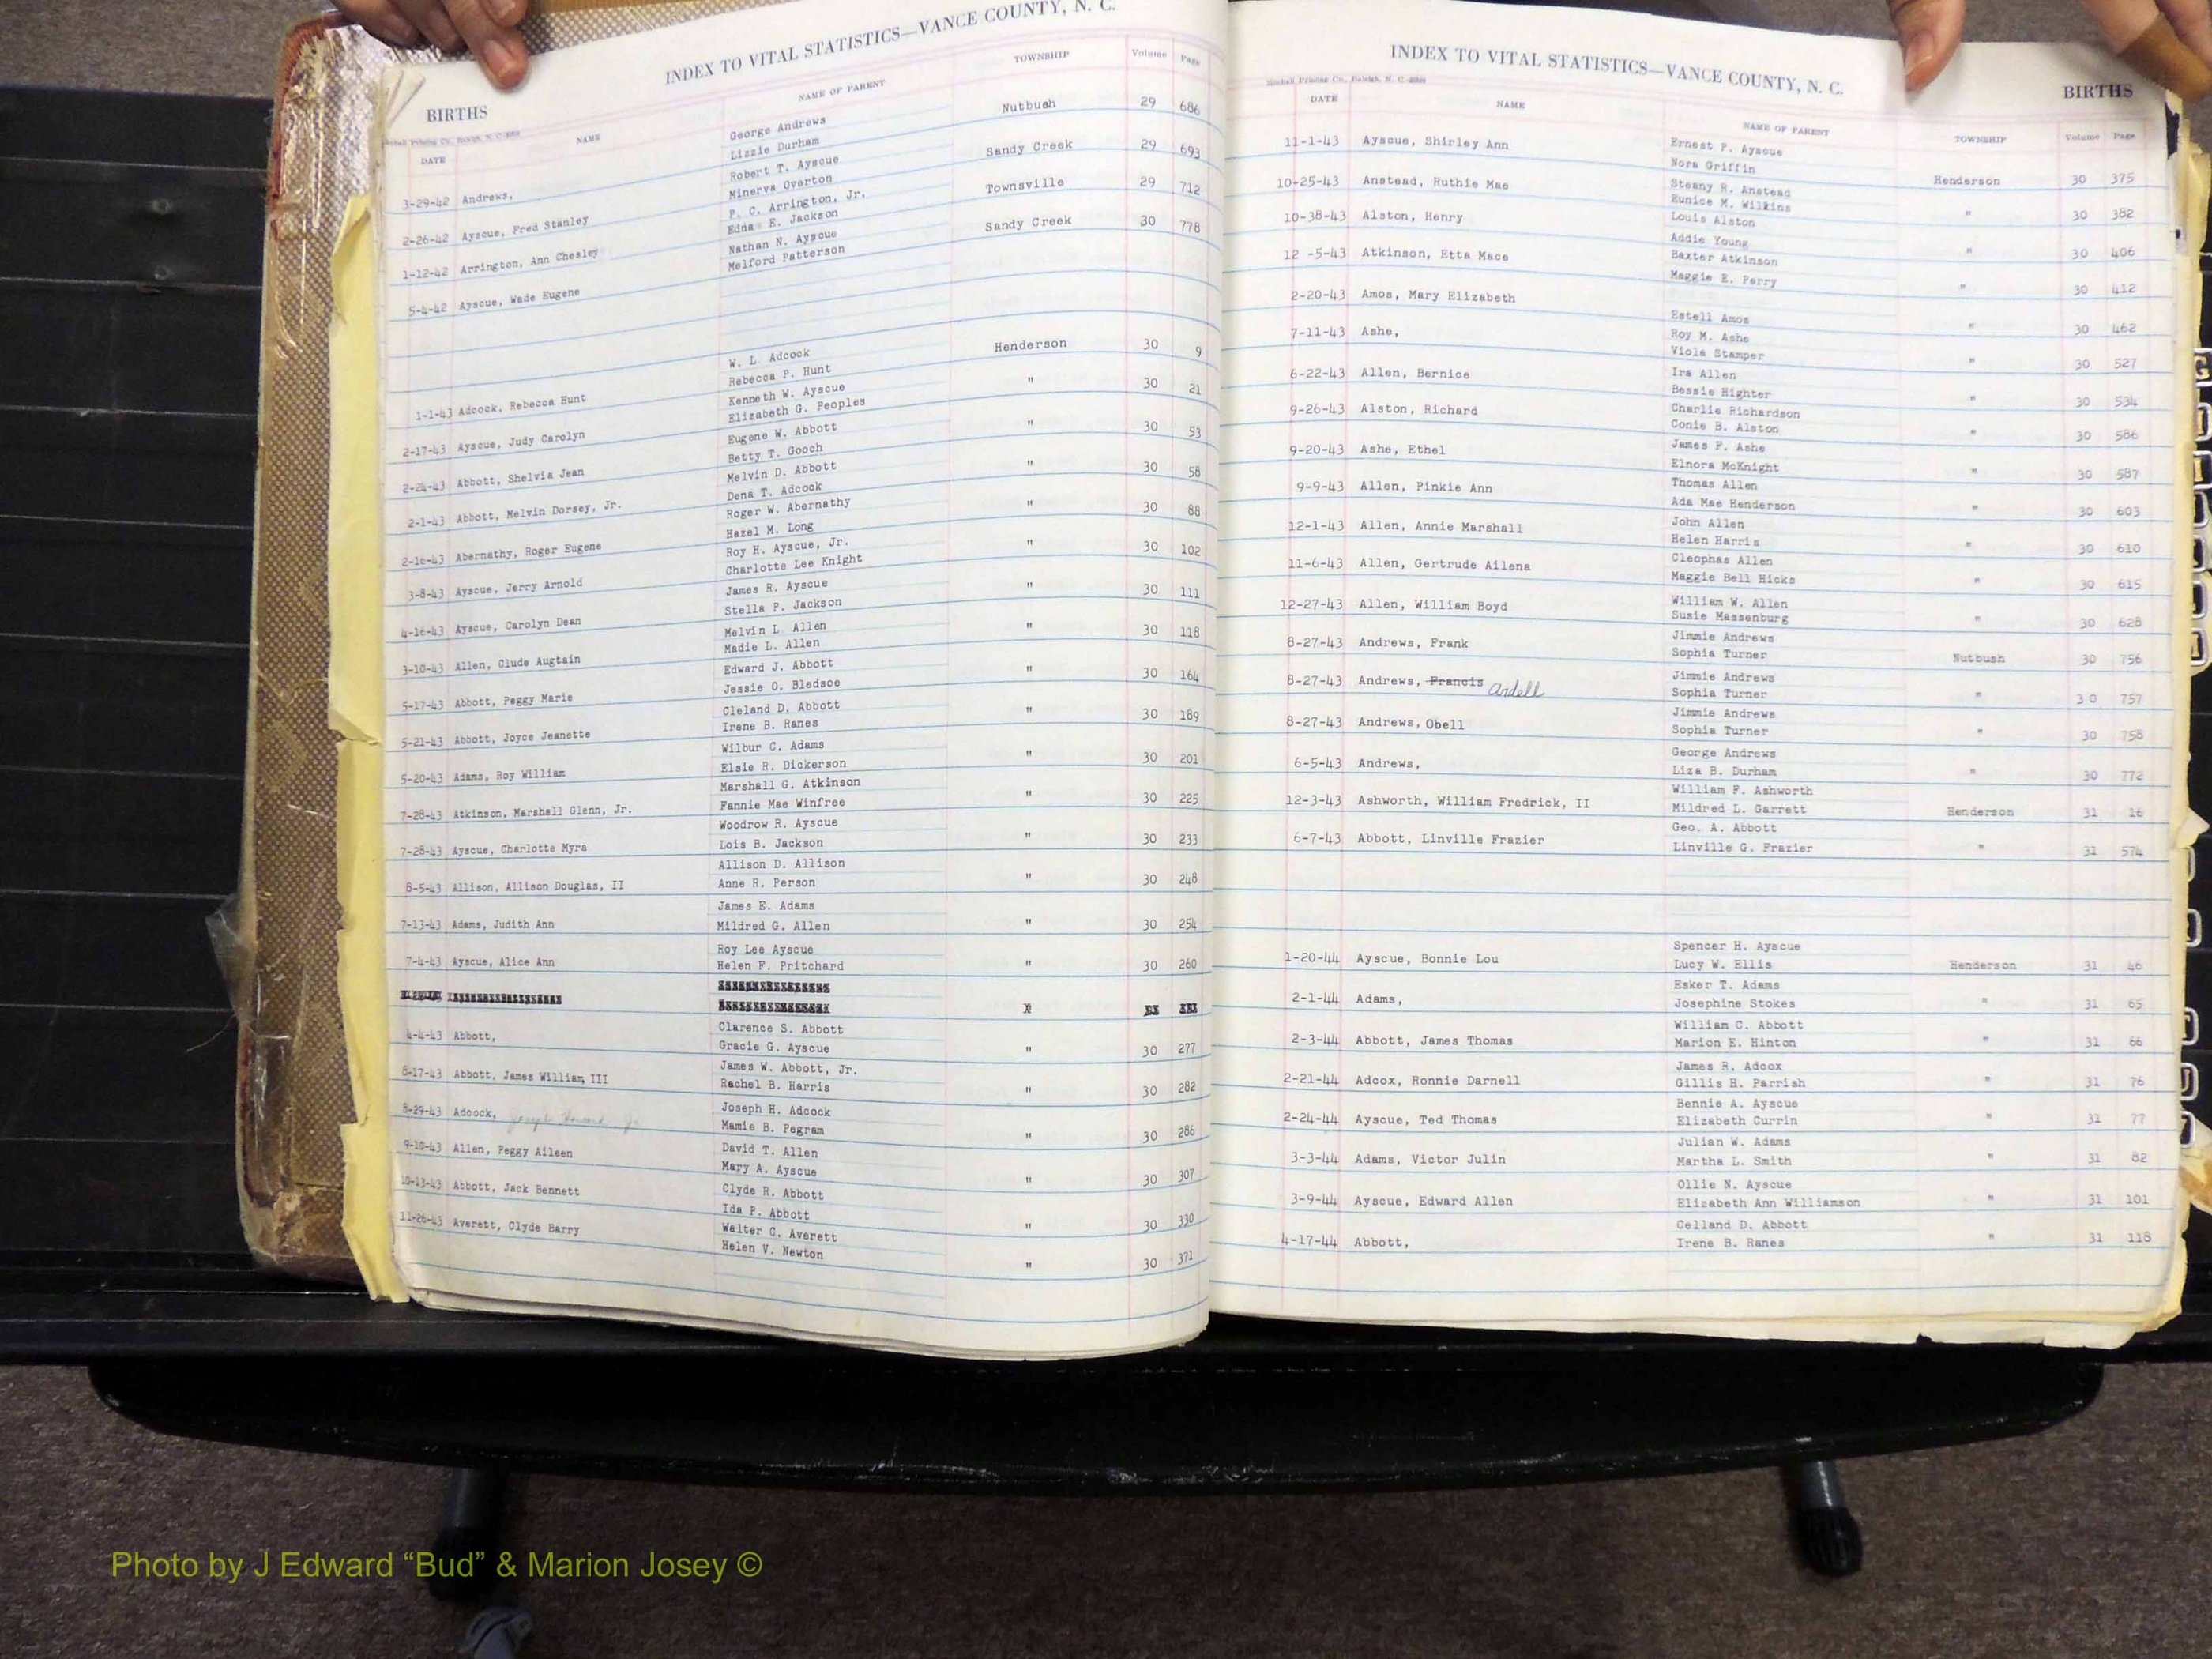 INDEX TO VITAL STATISTICS—VANCE COUNTY, N. C.
BIRTHS
DATE NAME NAME OF PARENT TOWNSHIP Volume Page
3-29-42 Andrews, George Andrews Nutbush 29 686
Lizzie Durham
2-26-42 Ayscue, Fred Stanley Robert T. Ayscue Sandy Creek 29 693
Minerva Overton
1-12-42 Arrington, Ann Chesley P. C. Arrington, Jr. Townsville 29 712
Edda E. Jackson
5-4-42 Ayscue, Wade Eugene Nathan N. Ayscue Sandy Creek 30 778
Melford Patterson
1-1-43 Adcock, Rebecca Hunt W. L. Adcock Henderson 30 9
Rebecca P. Hunt
2-17-43 Ayscue, Judy Carolyn Kenneth W. Ayscue " 30 21
Elizabeth G. Peoples
2-24-43 Abbott, Shelvia Jean Eugene W. Abbott " 30 53
Betty T. Gooch
2-1-43 Abbott, Melvin Dorsey, Jr. Melvin D. Abbott " 30 58
Dena T. Adcock
2-16-43 Abernathy, Roger Eugene Roger W. Abernathy " 30 88
Hazel M. Long
3-8-43 Ayscue, Jerry Arnold Roy H. Ayscue, Jr. " 30 102
Charlotte Lee Knight
4-16-43 Ayscue, Carolyn Dean James R. Ayscue " 30 111
Stella P. Jackson
3-10-43 Allen, Clude Augtain Melvin L. Allen " 30 118
Madie L. Allen
5-17-43 Abbott, Peggy Marie Edward J. Abbott " 30 164
Jessie O. Bledsoe
5-21-43 Abbott, Joyce Jeanette Cleland D. Abbott " 30 189
Irene B. Ranes
5-20-43 Adams, Roy William Wilbur C. Adams " 30 201
Elsie R. Dickerson
7-28-43 Atkinson, Marshall Glenn, Jr. Marshall G. Atkinson " 30 225
Fannie Mae Winfree
7-28-43 Ayscue, Charlotte Myra Woodrow R. Ayscue " 30 233
Lois B. Jackson
8-5-43 Allison, Allison Douglas, II Allison D. Allison " 30 248
Anne R. Person
7-13-43 Adams, Judith Ann James E. Adams " 30 254
Mildred G. Allen
7-4-43 Ayscue, Alice Ann Roy Lee Ayscue " 30 260
Helen F. Pritchard
4-4-43 Abbott, Clarence S. Abbott " 30 277
Gracie G. Ayscue
8-17-43 Abbott, James William, III James W. Abbott, Jr. " 30 282
Rachel B. Harris
8-29-43 Adcock, Joseph Howard Jr Joseph H. Adcock " 30 286
Mamie B. Pegram
9-10-43 Allen, Peggy Aileen David T. Allen " 30 307
Mary A. Ayscue
10-13-43 Abbott, Jack Bennett Clyde R. Abbott " 30 330
Ida P. Abbott
11-26-43 Averett, Clyde Barry Walter C. Averett " 30 371
Helen V. Newton
INDEX TO VITAL STATISTICS—VANCE COUNTY, N. C.
BIRTHS
DATE NAME NAME OF PARENT TOWNSHIP Volume Page
11-1-43 Ayscue, Shirley Ann Ernest P. Ayscue Henderson 30 375
Nora Griffin
10-25-43 Anstead, Ruthie Mae Steany R. Anstead " 30 382
Eunice M. Wilkins
10-38-43 Alston, Henry Louis Alston " 30 406
Addie Young
12 -5-43 Atkinson, Etta Mace Baxter Atkinson " 30 412
Maggie E. Perry
2-20-43 Amos, Mary Elizabeth Estell Amos " 30 462
7-11-43 Ashe, Roy M. Ashe " 30 527
Viola Stamper
6-22-43 Allen, Bernice Ira Allen " 30 534
Bessie Highter
9-26-43 Alston, Richard Charlie Richardson " 30 586
Conie B. Alston
9-20-43 Ashe, Ethel James F. Ashe " 30 587
Elnora McKnight
9-9-43 Allen, Pinkie Ann Thomas Allen " 30 603
Ada Mae Henderson
12-1-43 Allen, Annie Marshall John Allen " 30 610
Helen Harris
11-6-43 Allen, Gertrude Ailena Cleophas Allen " 30 615
Maggie Bell Hicks
12-27-43 Allen, William Boyd William W. Allen " 30 628
Susie Massenburg
8-27-43 Andrews, Frank Jimmie Andrews Nutbush 30 756
Sophia Turner
8-27-43 Andrews, Francis Ardell Jimmie Andrews " 3 0 757
Sophia Turner
8-27-43 Andrews, Obell Jimmie Andrews " 30 758
Sophia Turner
6-5-43 Andrews, George Andrews " 30 772
Liza B. Durham
12-3-43 Ashworth, William Fredrick, II William F. Ashworth Henderson 31 16
Mildred L. Garrett
6-7-43 Abbott, Linville Frazier Geo. A. Abbott " 31 574
Linville G. Frazier
1-20-44 Ayscue, Bonnie Lou Spencer H. Ayscue Henderson 31 46
Lucy W. Ellis
2-1-44 Adams, Esker T. Adams " 31 65
Josephine Stokes
2-3-44 Abbott, James Thomas William C. Abbott " 31 66
Marion E. Hinton
2-21-44 Adcox, Ronnie Darnell James R. Adcox " 31 76
Gillis H. Parrish
2-24-44 Ayscue, Ted Thomas Bennie A. Ayscue " 31 77
Elizabeth Currin
3-3-44 Adams, Victor Julin Julian W. Adams " 31 82
Martha L. Smith
3-9-44 Ayscue, Edward Allen Ollie N. Ayscue " 31 101
Elizabeth Ann Williamson
4-17-44 Abbott, Celland D. Abbott " 31 118
Irene B. Ranes
Photo by J Edward “Bud” & Marion Josey ©